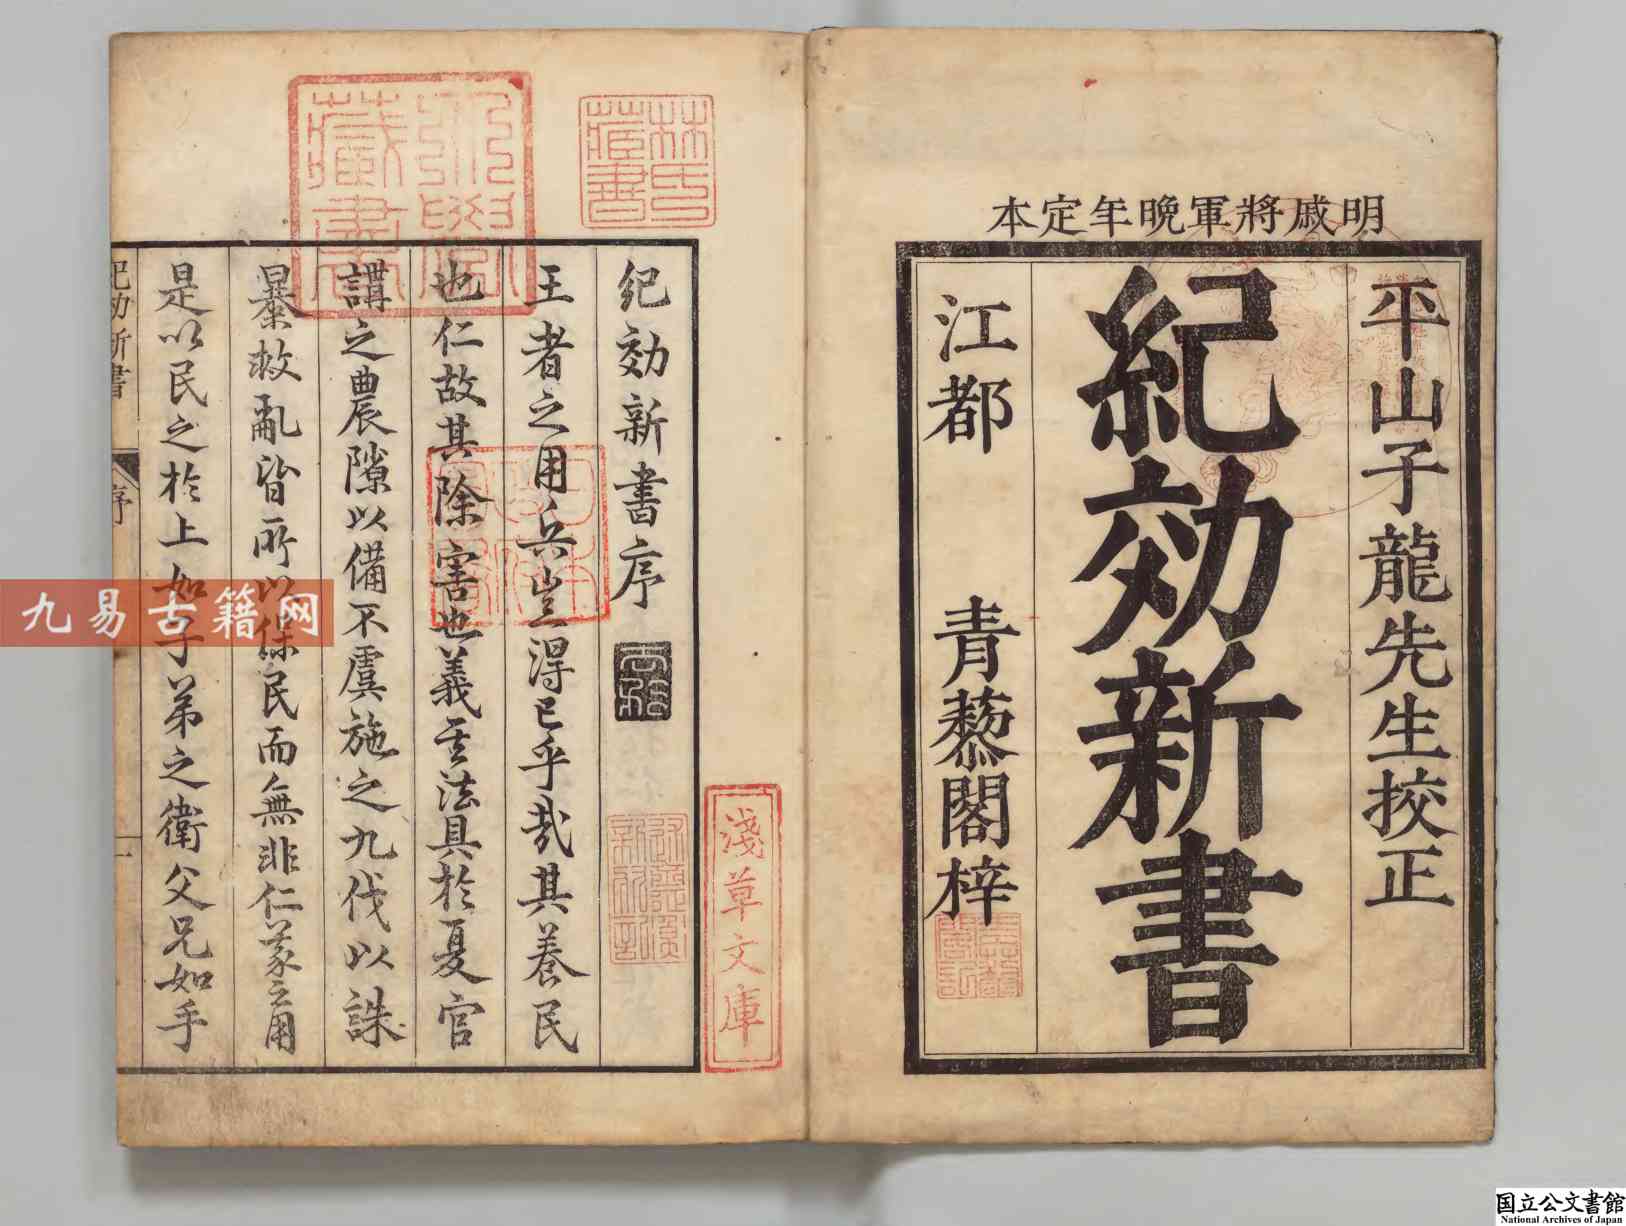 明戚將軍晚年定本
平山子龍先生挍正
紀効新書
江都 青藜閣梓
林氏藏書
淺草文庫
紀効新書序
王者之用兵豈得已乎哉其養民
也仁故其除害也義其法具於夏官
講之農隙以備不虞施之九伐以誅
暴救亂皆所以保民而無非仁義之用
是以民之於上如子弟之衛父兄如手
紀効新書
序
一
九易古籍网
国立公文書館
National Archives of Japan